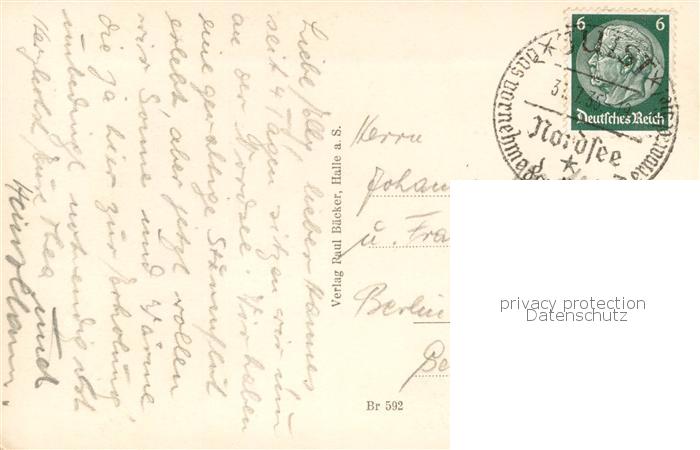 Liebe Elly, lieber Hannes
seit 4 Tagen sitzen wir nun
an der Nordsee. Wir haben
eine gewaltige Sturmflut
erlebt, aber jetzt wollen
wir Sonne und Wärme
die ja hier zur Erholung
unbedingt notwendig ist
Herzlichst Eure Thea und
Heinz
Verlag Paul Bäcker, Halle a. S.
Br 592
Herrn
Johan
u. Fra
Berlin
Be
6 6
Deutsches Reich
JUIST
31.7.36
Nordsee
Das vornehme
privacy protection
Datenschutz